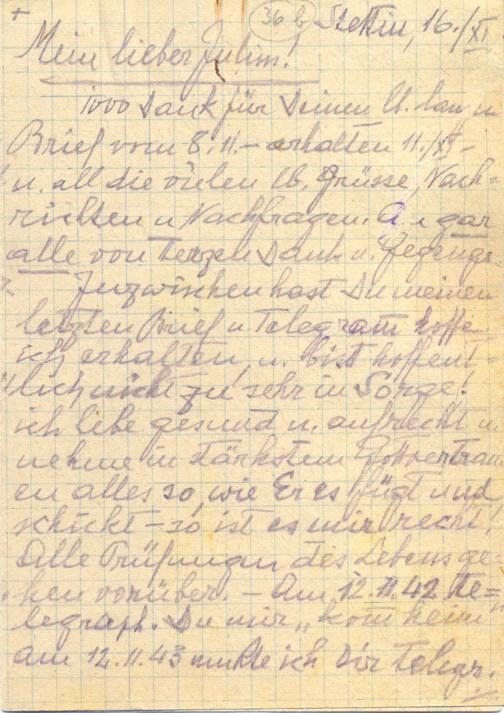 + 36 b Stettin, 16./XI.
Mein lieber Julim!
1000 Dank für Deinen lb. u
Brief vom 8.11. – erhalten 11./XI. –
u. all die vielen lb. Grüsse, Nach=
richten u Nachfragen. gar
alle von Herzen Dank u. Gegengr.
Inzwischen hast Du meinen
letzten Brief u Telegramm hoffe
ich erhalten, u. bist hoffent=
lich nicht zu sehr in Sorge!
ich lebe gesund u. aufrecht u.
nehme in stärkstem Gottvertrau
en alles so, wie Er es fügt und
schickt – so ist es mir recht!
Alle Prüfungen des Lebens ge
hen vorüber. – Am 12.11.42 te=
legraph. Du mir „komm heim"
am 12.11.43 mußte ich Dir telegr.